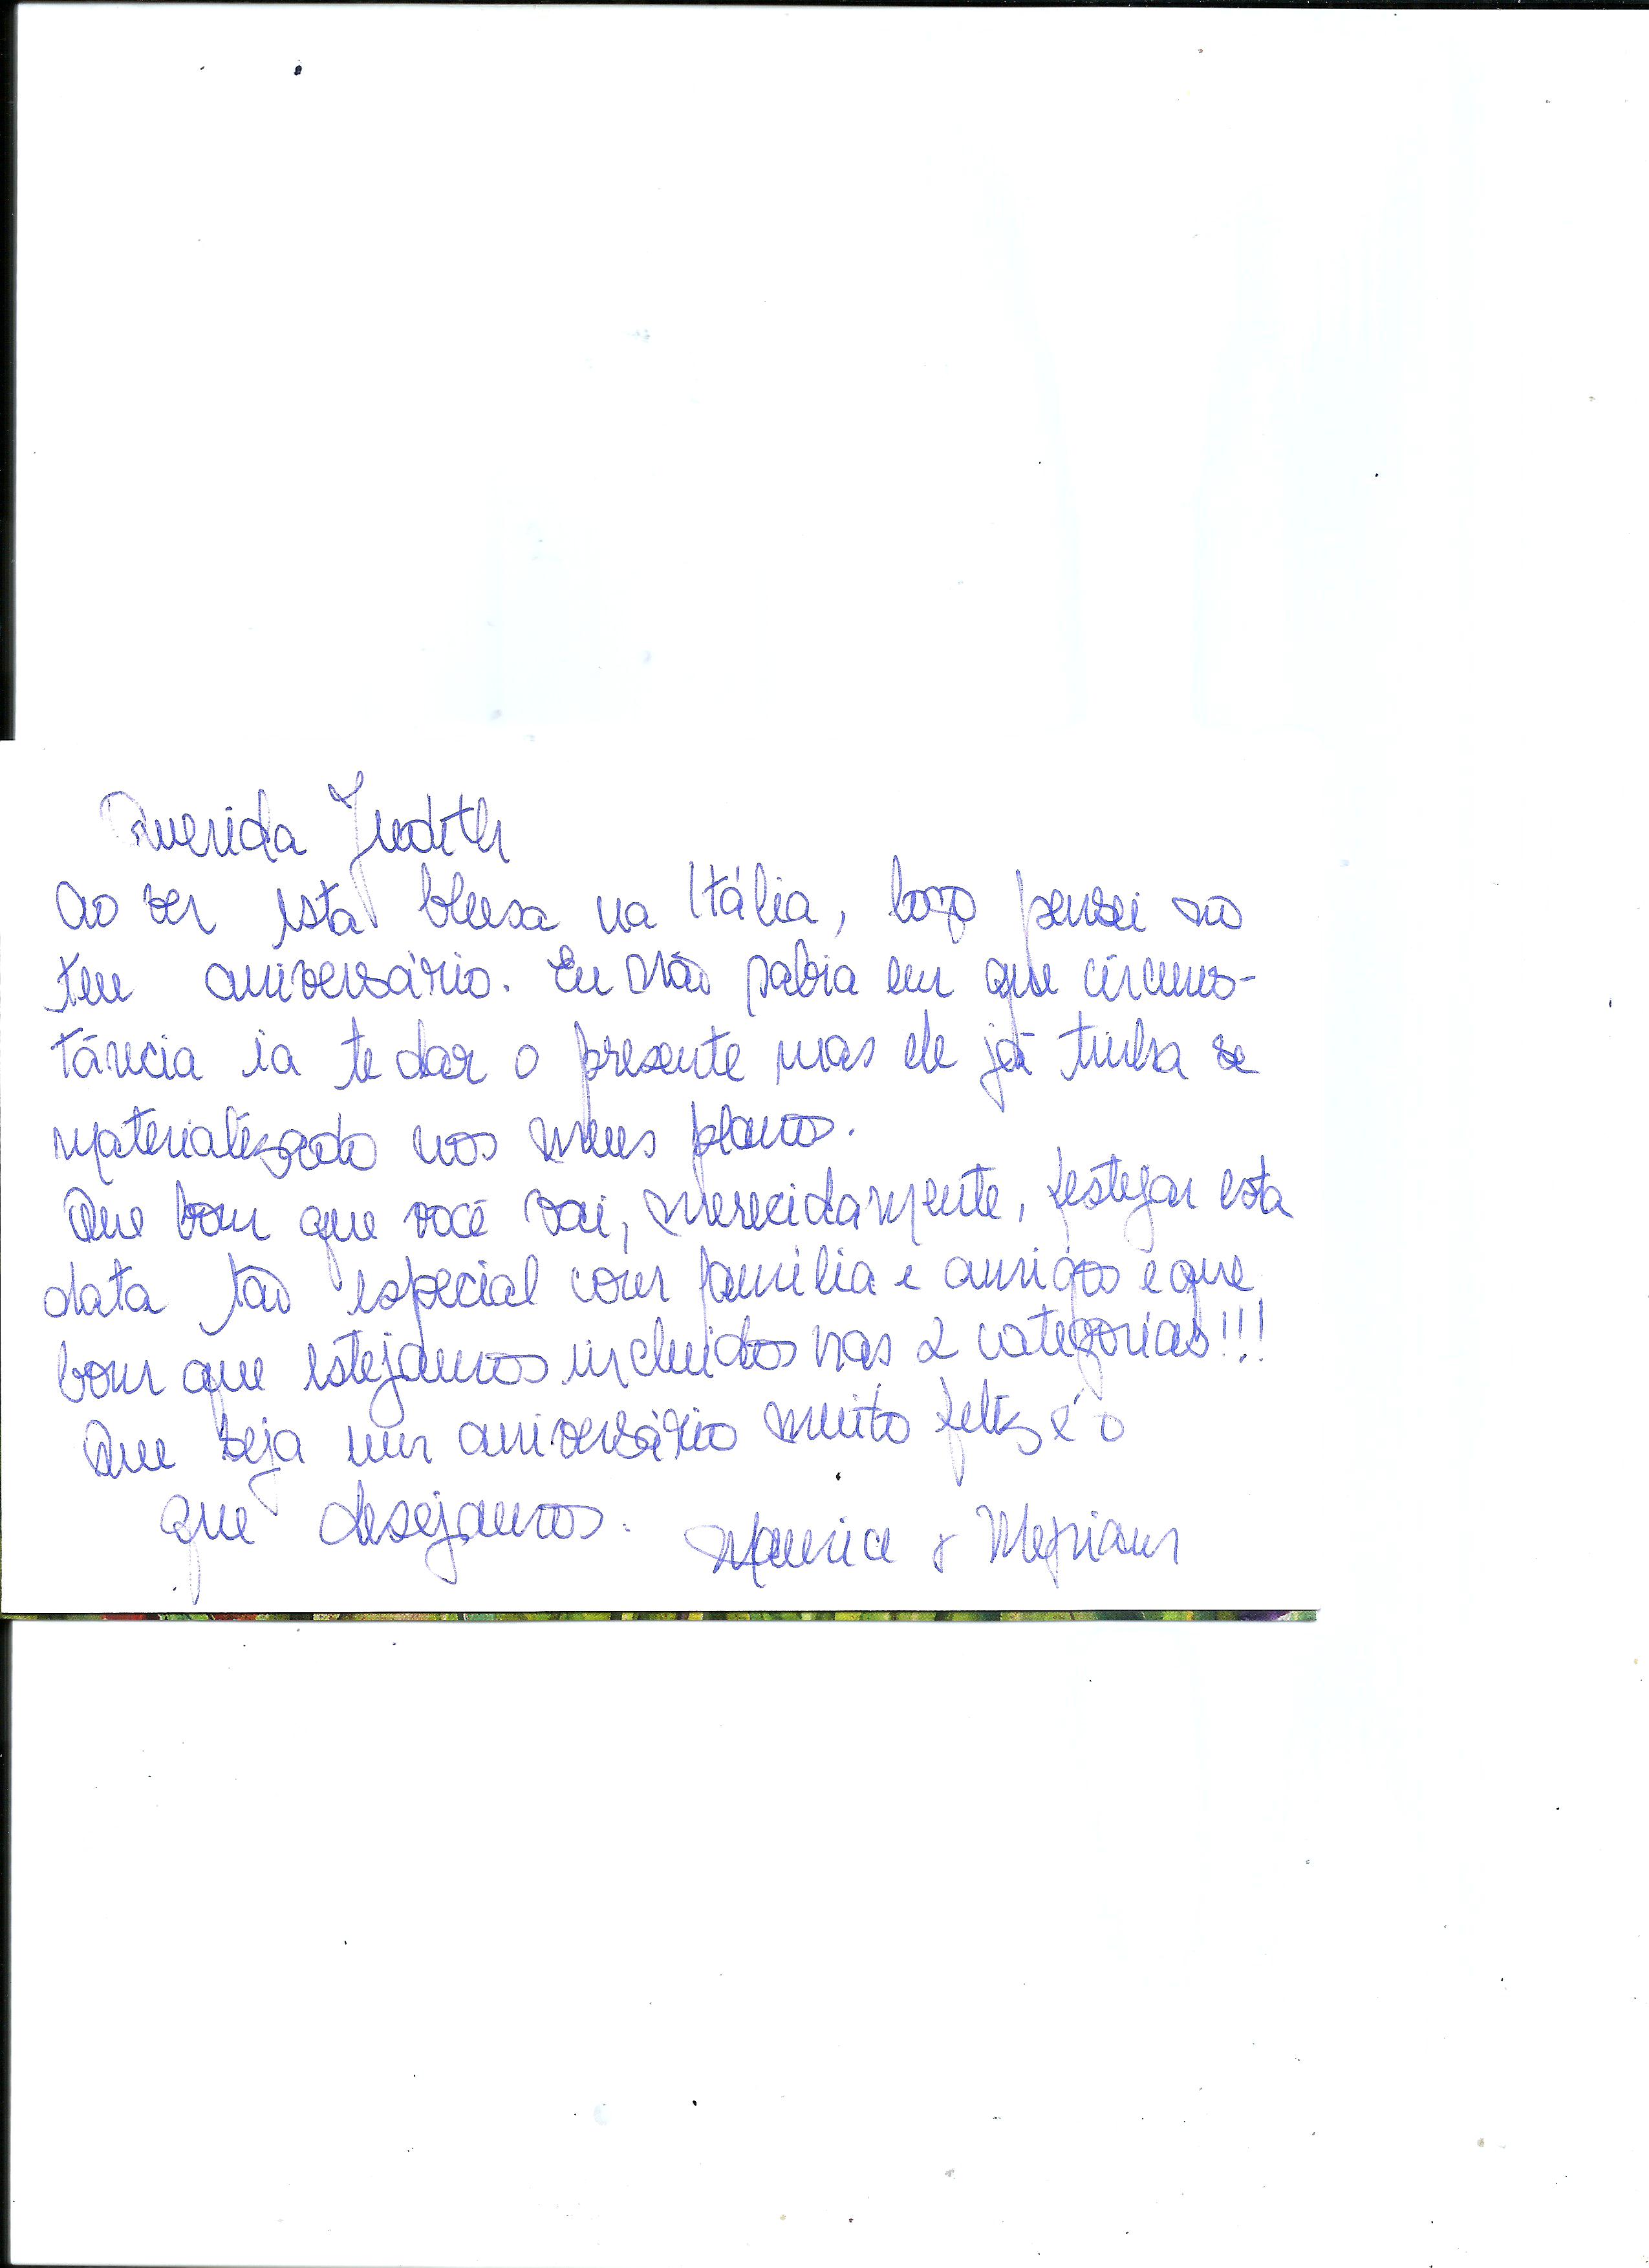 Querida Judith
Ao ver esta blusa na Itália, logo pensei no
teu aniversário. Eu não sabia em que circuns-
tância ia te dar o presente mas ele já tinha se
materializado nos meus planos.
Que bom que você vai, merecidamente, festejar esta
data tão especial com família e amigos e que
bom que estejamos incluidos nas 2 categorias!!!
Que seja um aniversário muito feliz é o
que desejamos. Maurice & Meyriam